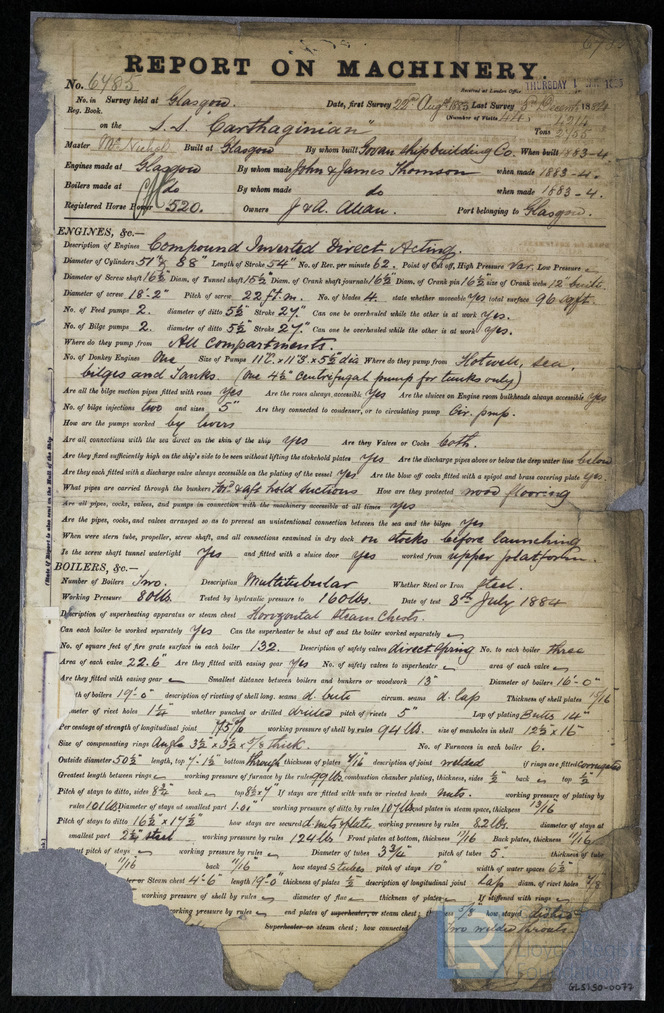 REPORT ON MACHINERY.
No. 6485
Received at London Office THURSDAY 1
No. in Survey held at Glasgow. Date, first Survey 22nd Augt 1883 Last Survey 5th 1884
Reg. Book. (Number of Visits 44)
on the S.S. "Carthaginian" Tons
Master Built at Glasgow By whom built Govan Shipbuilding Co. When built 1883-4
Engines made at Glasgow By whom made John & James Thomson when made 1883-4.
Boilers made at do By whom made do when made 1883-4.
Registered Horse Power 520. Owners J & A. Allan. Port belonging to Glasgow.
ENGINES, &c.—
Description of Engines Compound Inverted Direct Acting.
Diameter of Cylinders 51" & 88" Length of Stroke 54" No. of Rev. per minute 62. Point of Cut off, High Pressure Var. Low Pressure
Diameter of Screw shaft 16½ Diam. of Tunnel shaft 15½ Diam. of Crank shaft journals 16½ Diam. of Crank pin 16½ size of Crank webs 12" built.
Diameter of screw 18'-2" Pitch of screw 22 ft. m. No. of blades 4. state whether moveable yes total surface 96 sq ft.
No. of Feed pumps 2. diameter of ditto 5½ Stroke 27." Can one be overhauled while the other is at work yes.
No. of Bilge pumps 2. diameter of ditto 5½ Stroke 27." Can one be overhauled while the other is at work yes.
Where do they pump from All compartments.
No. of Donkey Engines One Size of Pumps 11"C. x 11"S. x 5½ dia Where do they pump from Hotwell, sea,
bilges and Tanks. (One 4½" Centrifugal pump for tanks only)
Are all the bilge suction pipes fitted with roses yes Are the roses always accessible yes Are the sluices on Engine room bulkheads always accessible yes
No. of bilge injections two and sizes 5" Are they connected to condenser, or to circulating pump Cir. pmp.
How are the pumps worked by levers
Are all connections with the sea direct on the skin of the ship yes Are they Valves or Cocks both.
Are they fixed sufficiently high on the ship's side to be seen without lifting the stokehold plates yes Are the discharge pipes above or below the deep water line below
Are they each fitted with a discharge valve always accessible on the plating of the vessel yes Are the blow off cocks fitted with a spigot and brass covering plate yes
What pipes are carried through the bunkers For'd & aft hold suctions How are they protected wood flooring
Are all pipes, cocks, valves, and pumps in connection with the machinery accessible at all times yes
Are the pipes, cocks, and valves arranged so as to prevent an unintentional connection between the sea and the bilges yes
When were stern tube, propeller, screw shaft, and all connections examined in dry dock on stocks before launching
Is the screw shaft tunnel watertight yes and fitted with a sluice door yes worked from upper platform.
BOILERS, &c.—
Number of Boilers Two. Description Multitubular Whether Steel or Iron Steel.
Working Pressure 80 lbs. Tested by hydraulic pressure to 160 lbs. Date of test 8th July 1884
Description of superheating apparatus or steam chest Horizontal Steam Chests.
Can each boiler be worked separately yes Can the superheater be shut off and the boiler worked separately
No. of square feet of fire grate surface in each boiler 132. Description of safety valves direct spring No. to each boiler three
Area of each valve 22.6" Are they fitted with easing gear yes No. of safety valves to superheater area of each valve
Are they fitted with easing gear Smallest distance between boilers and bunkers or woodwork 13" Diameter of boilers 16'-0"
th of boilers 19'-0" description of riveting of shell long. seams d. butts circum. seams d. lap Thickness of shell plates 15/16"
meter of rivet holes 1¼" whether punched or drilled drilled pitch of rivets 5" Lap of plating Butts 14"
Percentage of strength of longitudinal joint 75% working pressure of shell by rules 94 lbs. size of manholes in shell 12½ x 16
Size of compensating rings Angle 3½" x 3½ x 5/8 thick. No. of Furnaces in each boiler 6.
Outside diameter 50½" length, top 7'-1½" bottom through thickness of plates 7/16" description of joint welded if rings are fitted corrugated
Greatest length between rings working pressure of furnace by the rules 99 lbs. combustion chamber plating, thickness, sides ½" back top ½
Pitch of stays to ditto, sides 8¾" back top 8½ x 7" If stays are fitted with nuts or riveted heads nuts. working pressure of plating by
rules 101 lbs. Diameter of stays at smallest part 1.01" working pressure of ditto, by rules 107 lbs. end plates in steam space, thickness 13/16
Pitch of stays to ditto 16½ x 17½" how stays are secured d. nuts & plate working pressure by rules 82 lbs. diameter of stays at
smallest part 2½" steel working pressure by rules 124 lbs. Front plates at bottom, thickness 11/16 Back plates, thickness 11/16
pitch of stays working pressure by rules Diameter of tubes 3¾" pitch of tubes 5." thickness of tube
11/16 back 11/16" how stayed s tubes pitch of stays 10" width of water spaces 6½"
Steam chest 4'-6" length 19'-0" thickness of plates ½ description of longitudinal joint Lap diam. of rivet holes 7/8
pressure of shell by rules diameter of flue thickness of plates If stiffened with rings
working pressure by rules end plates of superheater, or steam chest; 5/8" how stayed dished
Superheater or steam chest; how connected Two welded throats.
(State if Report is also sent on the Hull of the Ship
LR Lloyd's Register Foundation
GLS130-0077